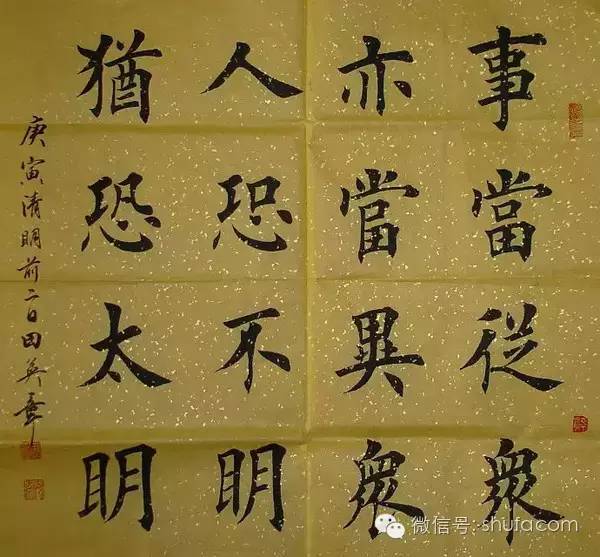 事當從衆
亦當異衆
人恐不明
猶恐太明
庚寅清明前二日田英章
微信号: shufacom